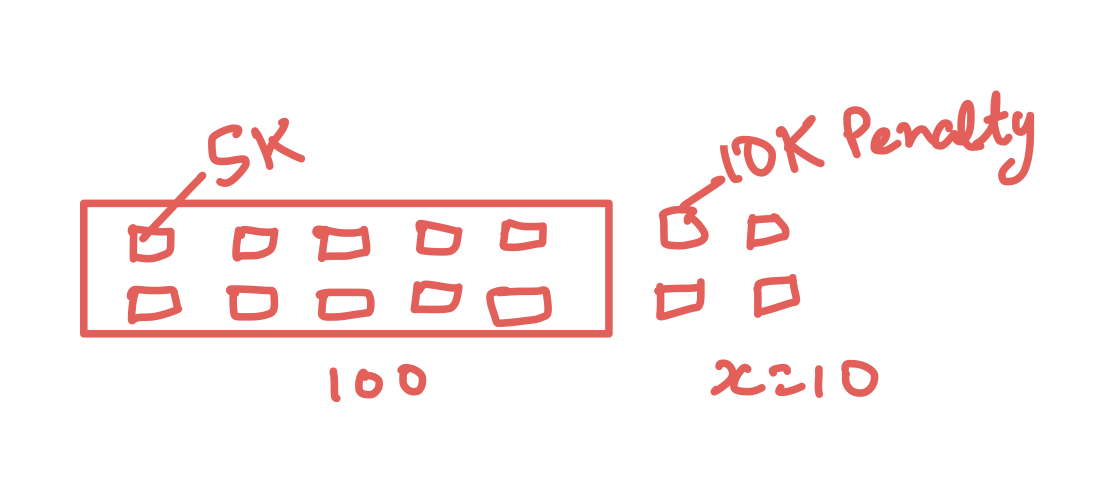 5K
10K Penalty
100
x=10